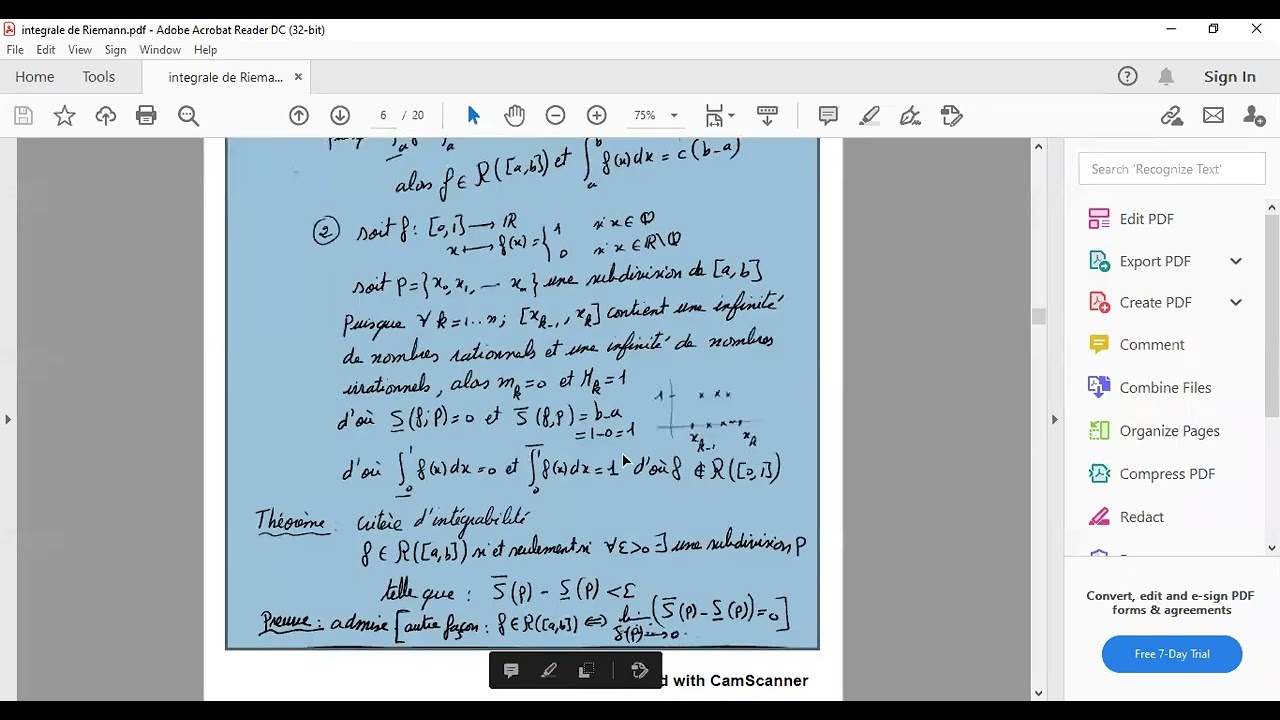 integrale de Riemann.pdf - Adobe Acrobat Reader DC (32-bit)
File Edit View Sign Window Help
Home Tools integrale de Riema... × Sign In
6 / 20 75%
alors f ∈ R([a,b]) et ∫_a^b f(x)dx = c(b-a)
② soit f: [0,1] → ℝ
x ↦ f(x) = { 1 si x ∈ ℚ
0 si x ∈ ℝ\ℚ
soit P = {x₀, x₁, --- xₙ} une subdivision de [a,b]
Puisque ∀ k=1...n; [x_{k-1}, x_k] contient une infinité
de nombres rationnels et une infinité de nombres
irrationnels, alors m_k=0 et M_k=1
d'où S̲(f;P)=0 et S̅(f,P) = b-a
= 1-0 = 1
1
x_{k-1} x_k
d'où ∫̲_0^1 f(x)dx = 0 et ∫̅_0^1 f(x)dx = 1 d'où f ∉ R([0,1])
Théorème: critère d'intégrabilité
f ∈ R([a,b]) si et seulement si ∀ε>0 ∃ une subdivision P
telle que : S̅(P) - S̲(P) < ε
Preuve : admise [autre façon : f ∈ R([a,b]) ⇔ lim_{δ(P)→0} (S̅(P) - S̲(P)) = 0]
d with CamScanner
Search 'Recognize Text'
Edit PDF
Export PDF
Create PDF
Comment
Combine Files
Organize Pages
Compress PDF
Redact
Convert, edit and e-sign PDF
forms & agreements
Free 7-Day Trial